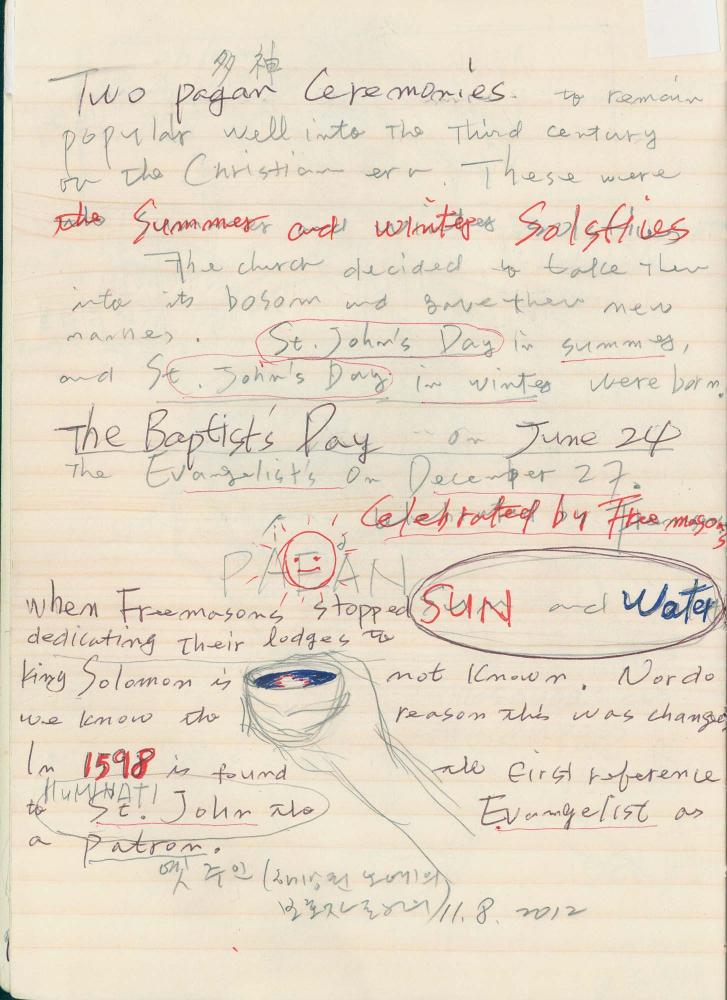 多神
Two pagan Ceremonies. to remain
popular well into the Third century
on the Christian era. These were
the Summer and winter Solsties
The church decided to take them
into its bosom and gave them new
names. St. John's Day in summer,
and St. John's Day in winter were born.
The Baptist's Day on June 24
The Evangelist's On December 27.
Celebrated by Freemasons
PAGAN
SUN and Water
when Freemasons stopped
dedicating Their lodges to
King Solomon is not known. Nor do
we know the reason this was changed
In 1598 is found the first reference
ILLUMINATI
to St. John the Evangelist as
a patron.
옛 주인 (해방된 노예의
보호자로서의) 11. 8. 2012